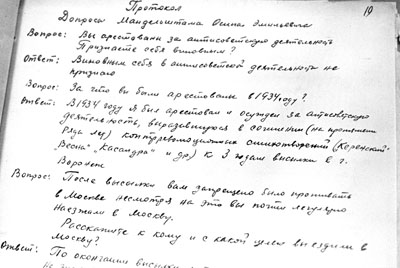 Протокол
19
Допроса Мандельштама Осипа Эмильевича
Вопрос: Вы арестованы за антисоветскую деятельность
Признаете себя виновным?
Ответ: Виновным себя в антисоветской деятельности не
признаю
Вопрос: За что вы были арестованы в 1934 году?
Ответ: В 1934 году я был арестован и осужден за антисоветскую
деятельность, выразившуюся в сочинении (на протяжении
ряда лет) контрреволюционных стихотворений (Керенский
"Весна" "Касандра" и др) к 3 годам высылки в г.
Воронеж
Вопрос: После высылки вам запрещено было проживать
в Москве несмотря на это вы почти легально
наезжали в Москву.
Расскажите к кому и с какой целью выездили в
Москву?
Ответ: По окончании высылки